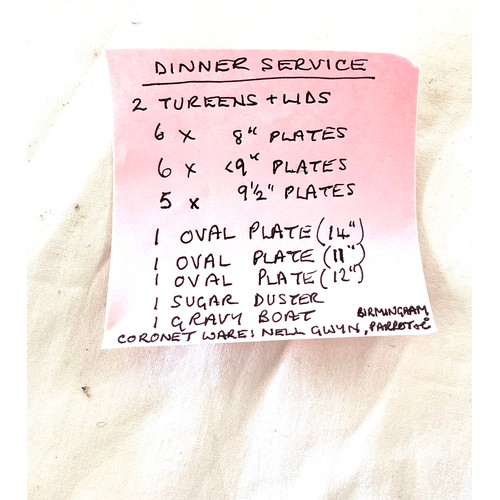 DINNER SERVICE
2 TUREENS + LIDS
6 x 8" PLATES
6 x <9" PLATES
5 x 9½" PLATES
1 OVAL PLATE (14")
1 OVAL PLATE (11")
1 OVAL PLATE (12")
1 SUGAR DUSTER
1 GRAVY BOAT BIRMINGAAM
CORONET WARE: NELL GWYN, PARROT & C